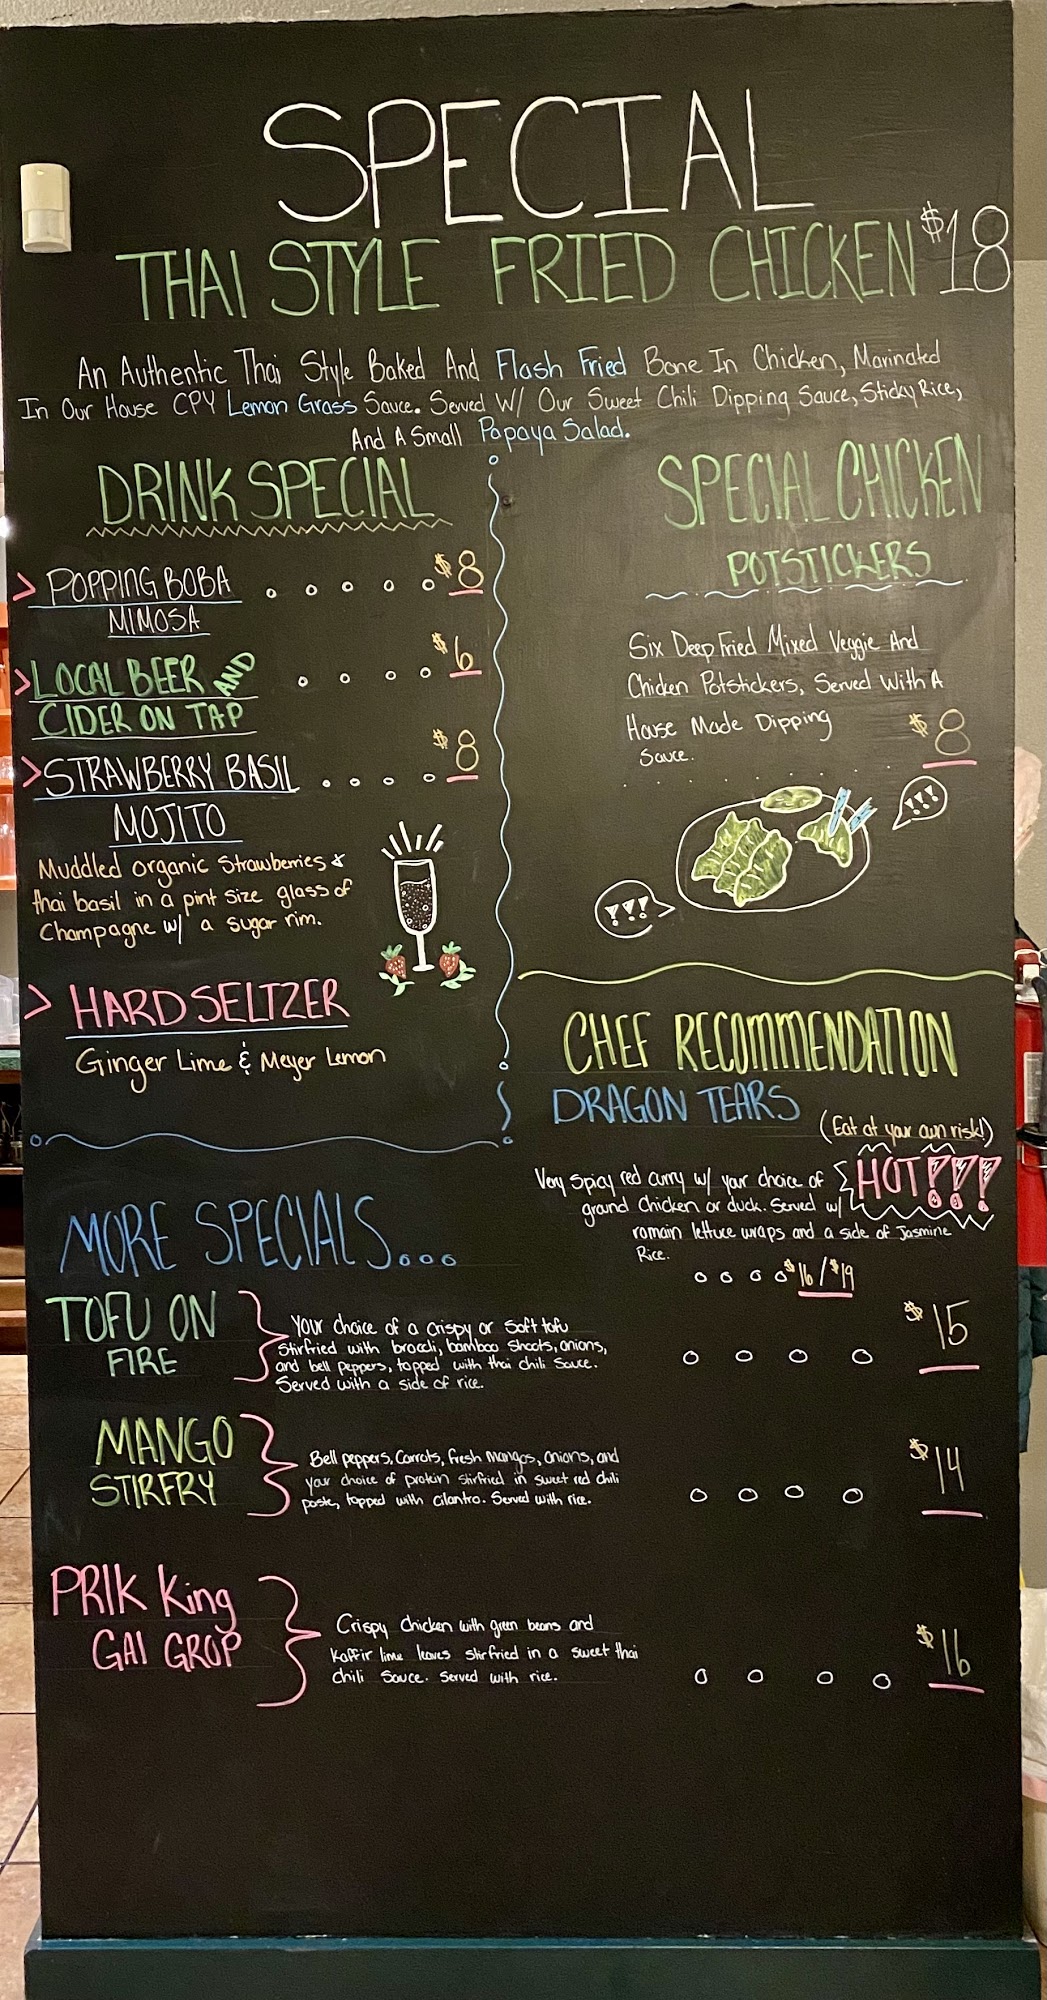 SPECIAL
THAI STYLE FRIED CHICKEN $18
An Authentic Thai Style Baked And Flash Fried Bone In Chicken, Marinated
In Our House CPY Lemon Grass Sauce. Served W/ Our Sweet Chili Dipping Sauce, Sticky Rice,
And A Small Papaya Salad.
DRINK SPECIAL
> POPPING BOBA $8
MIMOSA
> LOCAL BEER AND $6
CIDER ON TAP
> STRAWBERRY BASIL $8
MOJITO
Muddled organic strawberries &
thai basil in a pint size glass of
Champagne w/ a sugar rim.
> HARD SELTZER
Ginger Lime & Meyer Lemon
SPECIAL CHICKEN
POTSTICKERS
Six Deep Fried Mixed Veggie And
Chicken Potstickers, Served With A
House Made Dipping $8
Sauce.
!!!
!!!
CHEF RECOMMENDATION
DRAGON TEARS
(Eat at your own risk!)
Very spicy red curry w/ your choice of HOT!!!
ground chicken or duck. Served w/
romain lettuce wraps and a side of Jasmine
Rice.
$16/$19
MORE SPECIALS...
TOFU ON
FIRE
Your choice of a crispy or soft tofu
stirfried with brocoli, bamboo shoots, onions,
and bell peppers, topped with thai chili sauce.
Served with a side of rice.
$15
MANGO
STIRFRY
Bell peppers, Carrots, fresh mangos, onions, and
your choice of protein stirfried in sweet red chili
paste, topped with cilantro. Served with rice.
$14
PRIK King
GAI GROP
Crispy chicken with green beans and
Kaffir lime leaves stirfried in a sweet thai
chili sauce. Served with rice.
$16